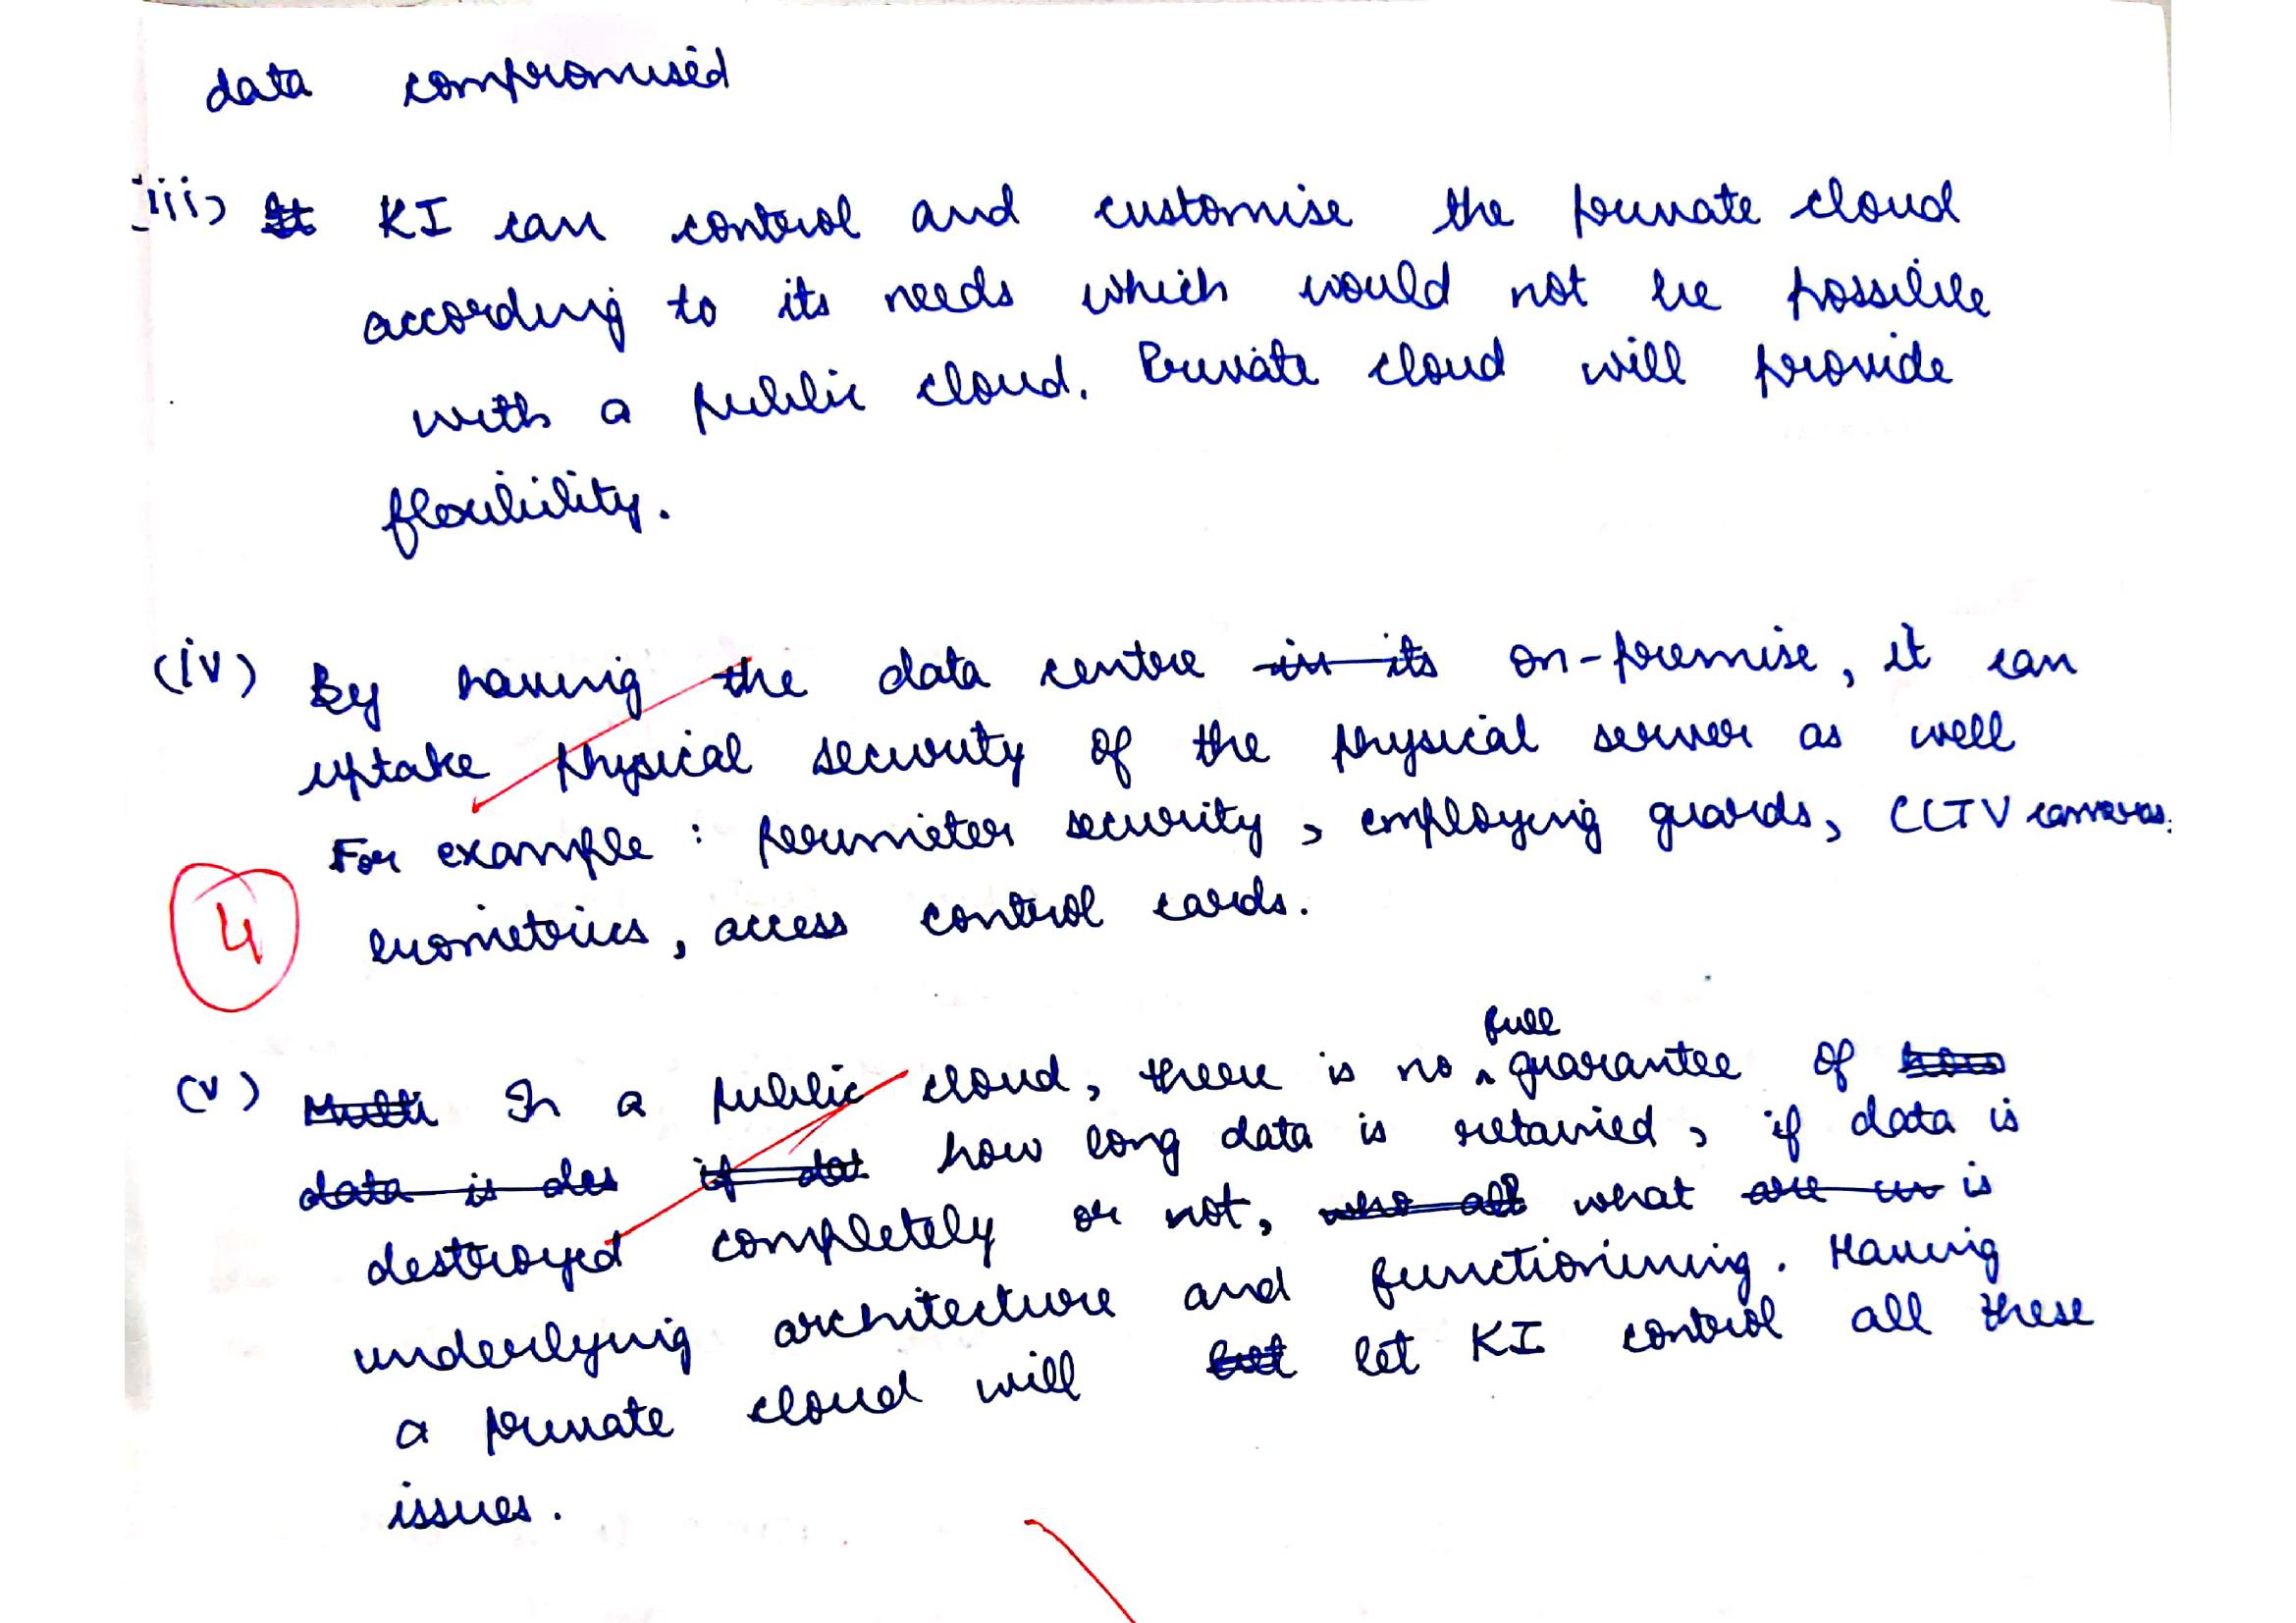 data compromised
iii) It KI can control and customise the private cloud
according to its needs which would not be possible
with a public cloud. Private cloud will provide
flexibility.
(iv) By having the data centre in its on-premise, it can
uptake physical security of the physical server as well
For example : perimeter security, employing guards, CCTV cameras.
4
biometrics, access control cards.
full
(v) Multi In a public cloud, there is no ^ guarantee of
data is des if dat how long data is retained, if data is
destroyed completely or not, who all what are is
underlying architecture and functioning. Having
a private cloud will but let KI control all these
issues.